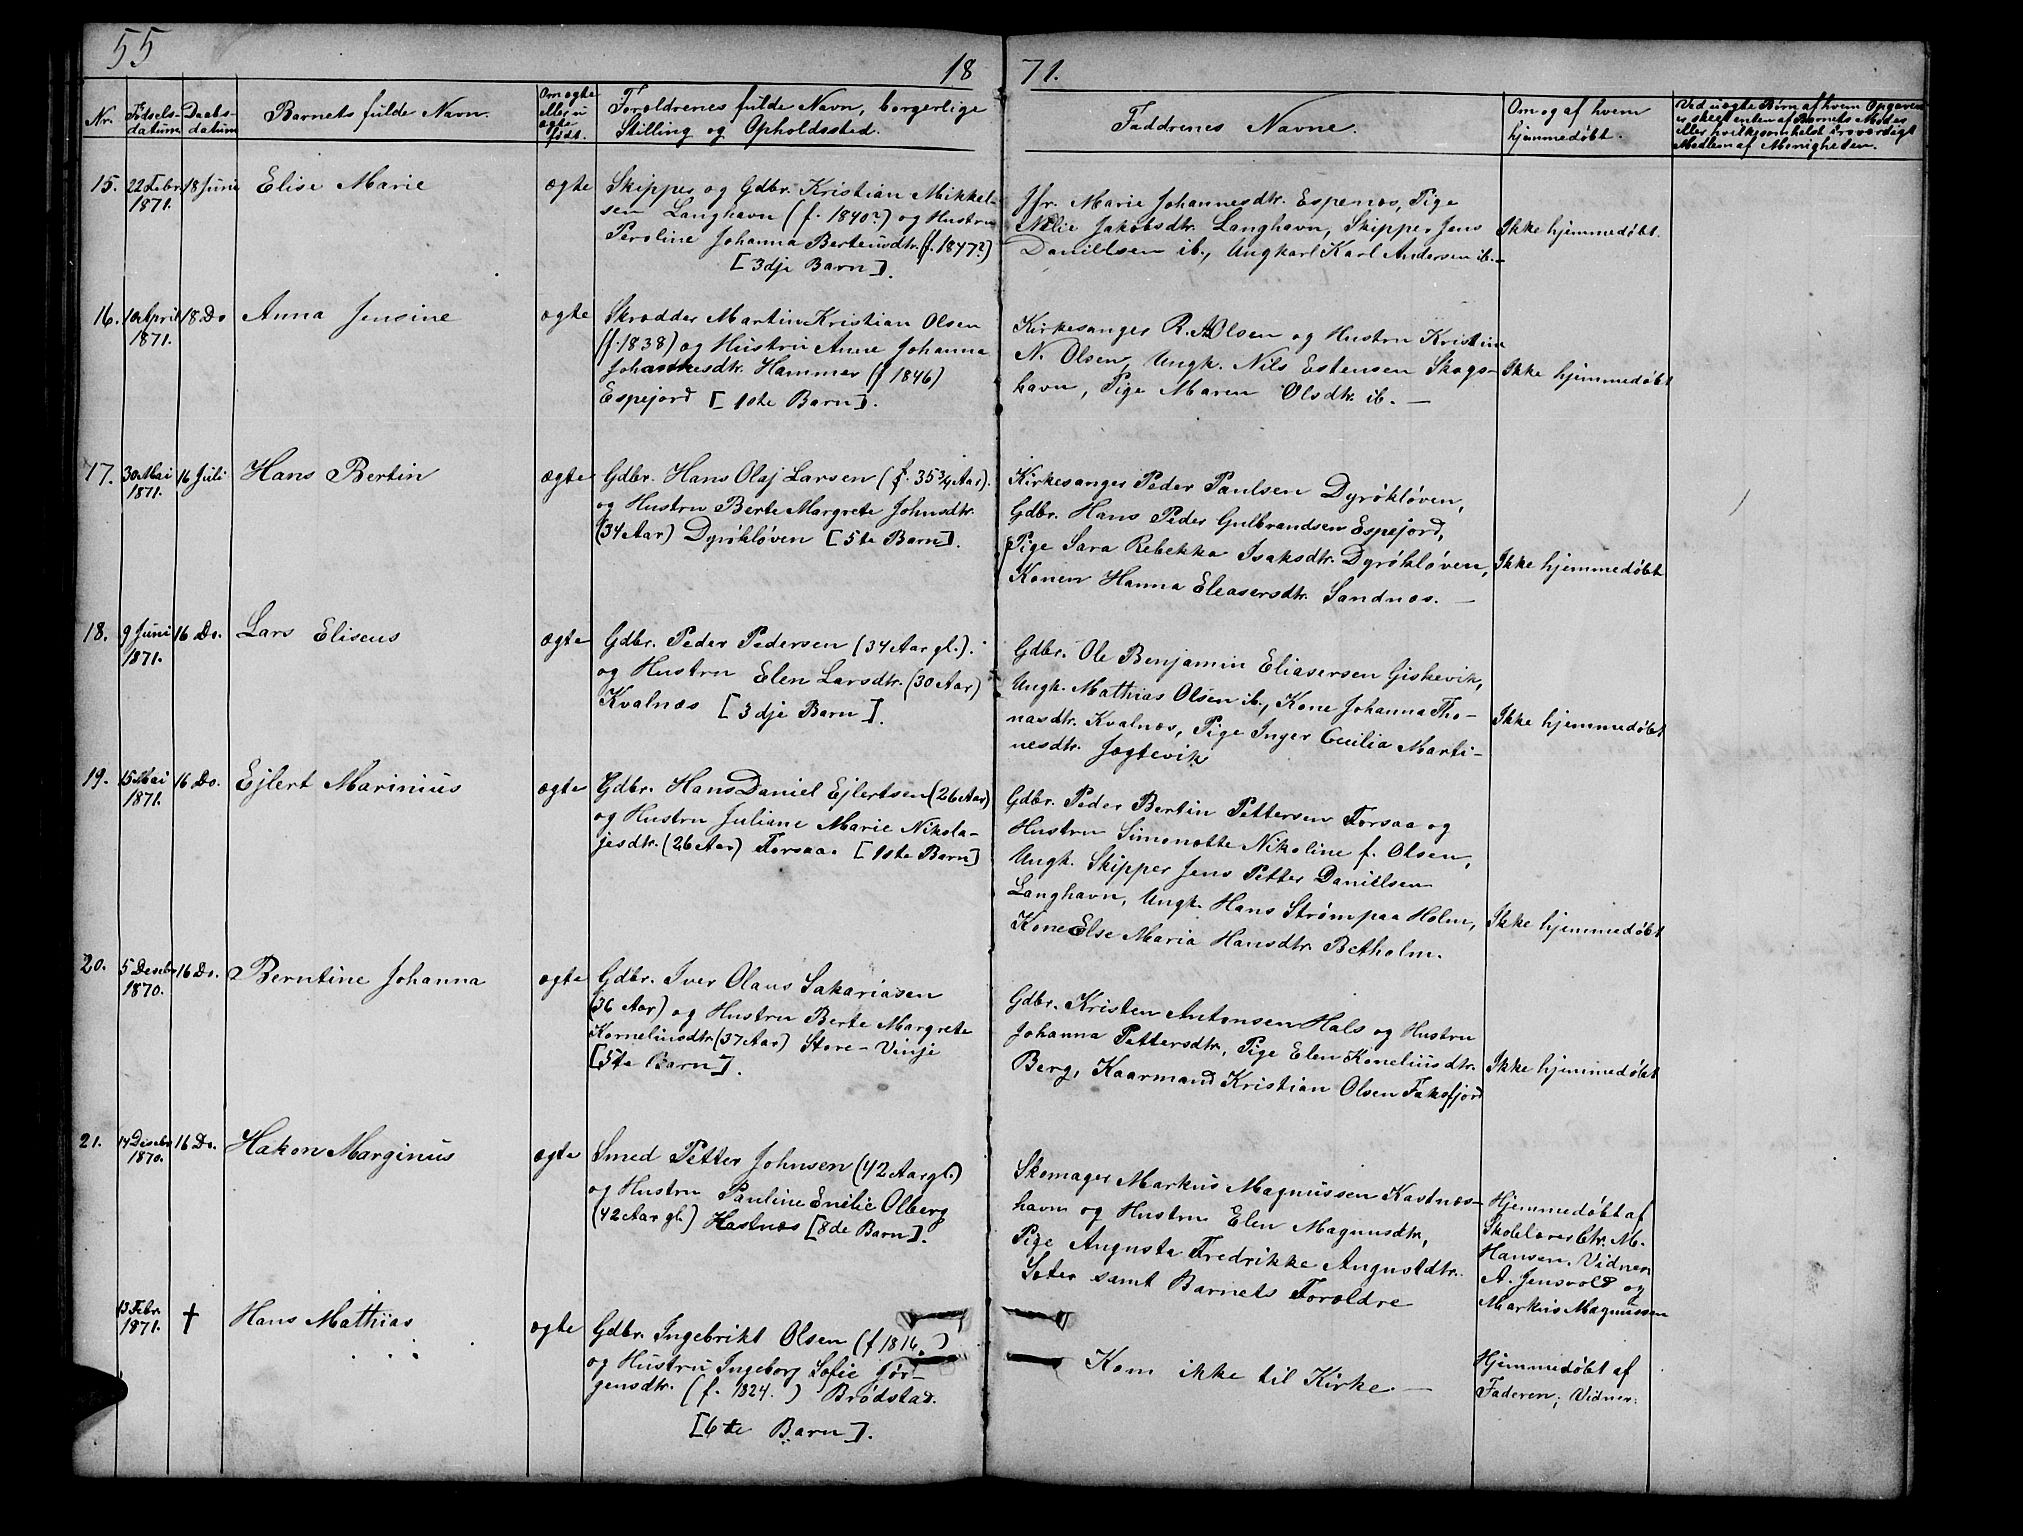 55
18 71.
Nr.
Fødsels-
datum
Daabs-
datum
Barnets fulde Navn.
Om ægte
eller u
ægte
født.
Forældrenes fulde Navn, borgerlige
Stilling og Opholdssted.
Faddrenes Navne.
Om og af hvem
hjemmedøbt.
Ved uægte Børn af hvem Opgaven
er skeet enten af Barnets Moder
eller hvilkesomhelst troværdigt
Medlem af Menigheden.
15.
22 Febr.
1871.
18 Juni
Elise Marie
ægte
Skipper og Gdbr. Kristian Mikkel-
sen Langhavn (f. 1840?) og Hustru
Peroline Johanna Berteusdtr. (f. 1847?)
[3dje Barn].
Jfr. Marie Johannesdtr. Espenæs, Pige
Jakobsdtr. Langhavn, Skipper Jens
Daniellsen ib., Ungkarl Karl Andersen ib.-
Ikke hjemmedøbt.
16.
10 April
1871.
18. Do
Anna Jensine
ægte
Skrædder Martin Kristian Olsen
(f. 1838) og Hustru Anne Johanna
Johannesdtr. Hammer (f 1846)
Espejord [1ste Barn].
Kirkesanger R. A. Olsen og Hustru Kristine
N. Olsen, Ungk. Nils Estensen Skags-
havn, Pige Maren Olsdtr. ib. —
Ikke hjemmedøbt
17.
30 Mai
1871.
16 Juli
Hans Bertin
ægte
Gdbr. Hans Olaj Larsen (f. 35 3/4 Aar).
og Hustru Berte Margrete Johnsdtr.
(34 Aar) Dyrøkløven [5te Barn].
Kirkesanger Peder Paulsen Dyrøkløven,
Gdbr. Hans Peder Gulbrandsen Espejord,
Pige Sara Rebekka Isaksdtr. Dyrøkløven,
Konen Hanna Eleasersdtr. Sandnæs. —
Ikke hjemmedøbt
18.
9 Juni
1871.
16 Do.
Lars Eliseus
ægte
Gdbr. Peder Pedersen (34 Aar gl.).
og Hustru Elen Larsdtr. (30 Aar)
Kvalnæs [3dje Barn].
Gdbr. Ole Benjamin Eliasersen Giskevik,
Ungk. Mathias Olsen ib., Kone Johanna Tho-
nasdtr. Kvalnæs, Pige Inger Cecilia Marti-
nesdtr. Jøgtevik
Ikke hjemmedøbt
19.
15 Mai
1871.
16 Do.
Ejlert Marinius
ægte
Gdbr. Hans Daniel Ejlertsen (26 Aar)
og Hustru Juliane Marie Nikola-
jesdtr. (26 Aar) Forsaa. [1ste Barn]
Gdbr. Peder Bertin Pettersen Forsaa og
Hustru Simonette Nikoline f. Olsen,
Ungk. Skipper Jens Petter Daniellsen
Langhavn, Ungk. Hans Strømpaa Holm,
Kone Else Maria Hansdtr. Betholm.
Ikke hjemmedøbt
20.
5 Decebr
1870.
16 Do.
Berntine Johanna
ægte
Gdbr. Iver Olaus Sakariasen
(36 Aar) og Hustru Berte Margrete
Korneliusdtr. (37 Aar) Store-Vinje
[5te Barn].
Gdbr. Kristen Antonsen Hals og Hustru
Johanna Pettersdtr., Pige Elen Koneliusdtr.
Berg, Kaarmand Kristian Olsen Faksfjord
Ikke hjemmedøbt
21.
14 Decebr
1870.
16 Do.
Hakon Marginius
ægte
Smed Petter Johnsen (42 Aar gl.)
og Hustru Pauline Emilie Olberg
(42 Aar gl.) Hastnæs [8de Barn].
Skomager Markus Magnussen Kastnæs-
havn og Hustru Elen Magnusdtr.,
Pige Augusta Fredrikke Augustdtr.
Sæter samt Barnets Forældre
Hjemmedøbt af
Skolelærer Chr. M.
Hansen. Vidner
A. Jensvold og
Markus Magnussen
13 Febr.
1871.
†
Hans Mathias
ægte
Gdbr. Ingebrikt Olsen (f 1816.)
og Hustru Ingeborg Sofie Jør-
gensdtr. (f. 1824.) Brødstad.
[6te Barn].
Kom ikke til Kirke. —
Hjemmedøbt af
Faderen; Vidner: